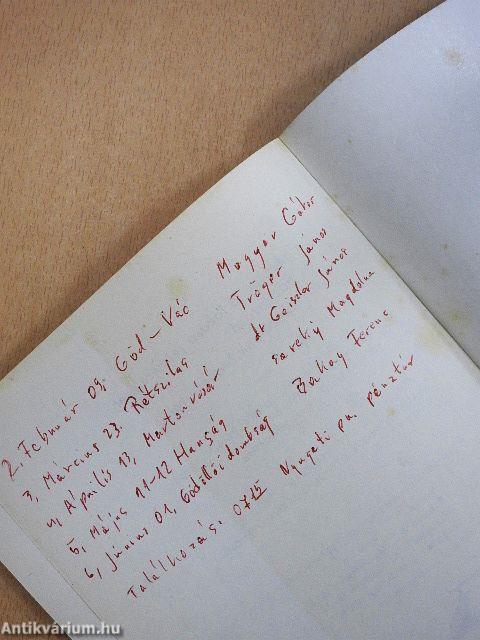 2. Február 09. Göd - Vác Magyar Gábor
3, Március 23, Rétszilas Tröger János
4, Április 13, Martonvásár dr Geiszler János
5, Május 11-12 Hanság Magdolna
6, Június 01, Gödöllői dombság Bakay Ferenc
Találkozás: 0715 Nyugati pu. pénztár
Antikvárium.hu